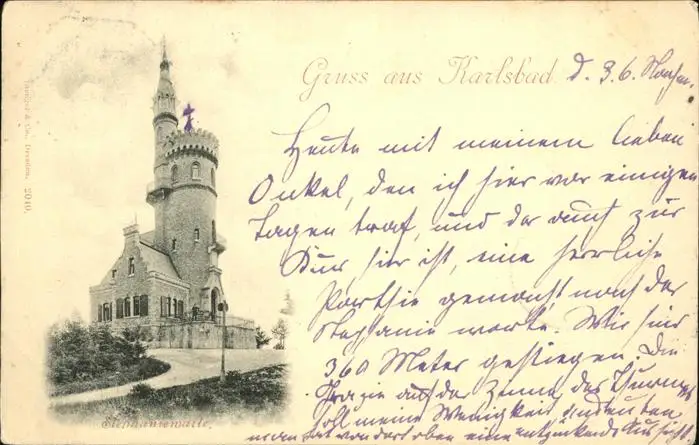 Gruss aus Karlsbad d. 3. 6.
Heute mit meinem lieben
Onkel, den ich hier vor einigen
Tagen traf, und der auch zur
Kur hier ist, eine herrliche
Parthie gemacht nach der
Stephanie warte. Wir sind
360 Meter gestiegen. Die
auf der Zinne des Thurmes
soll meine Wenigkeit andeuten
man hat von dort oben eine entzückende Aussicht
Stephaniewarte.
& Co., Dresden. 2010.